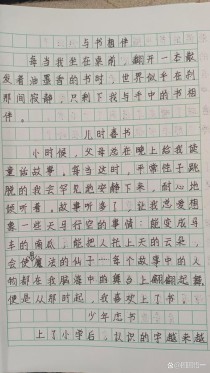 与书相伴
每当我坐在桌前，翻开一本散
发着油墨香的书时，世界似乎在刹
那间寂静，只剩下我与手中的书相
伴。
儿时喜书
小时候，父母总在晚上给我读
童话故事，每当这时，平常性子跳
脱的我会罕见地安静下来，耐心地
倾听着。故事听多了，让我总爱想
象一些天马行空的事情：能变成马
车的南瓜，能把人托上天的云朵，
会使魔法的仙子…每个故事中的人
物都在我脑海中的舞台上翩翩起舞。
便是从那时起，我喜欢上了书。
少年恋书
上了小学后，认识的字越来越